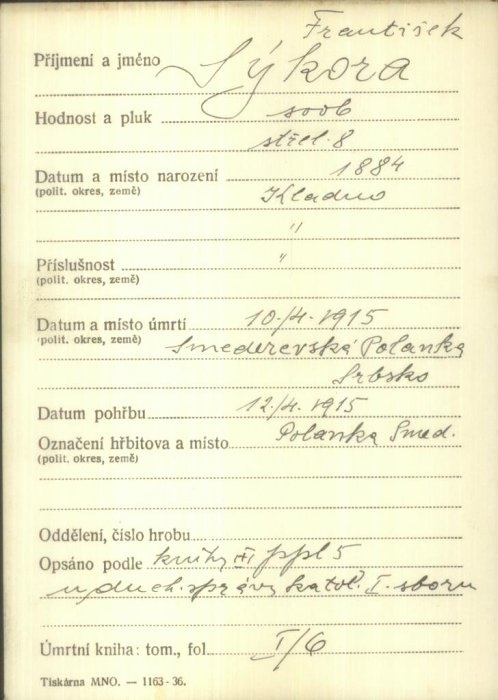 František
Příjmení a jméno Sýkora
Hodnost a pluk soob
střel. 8
Datum a místo narození 1884
(polit. okres, země) Kladno
"
Příslušnost "
(polit. okres, země)
Datum a místo úmrtí 10./4. 1915
(polit. okres, země) Smederevská Polanka
Srbsko
Datum pohřbu 12./4. 1915
Označení hřbitova a místo Polanka Smed.
(polit. okres, země)
Oddělení, číslo hrobu
Opsáno podle knihy ppl 5
u duch. správy katol. I. sboru
Úmrtní kniha: tom., fol. I/6
Tiskárna MNO. — 1163-36.